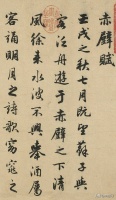 赤壁賦
壬戌之秋七月既望蘇子與
客泛舟遊于赤壁之下清
風徐来水波不興舉酒属
客誦明月之詩歌窈窕之